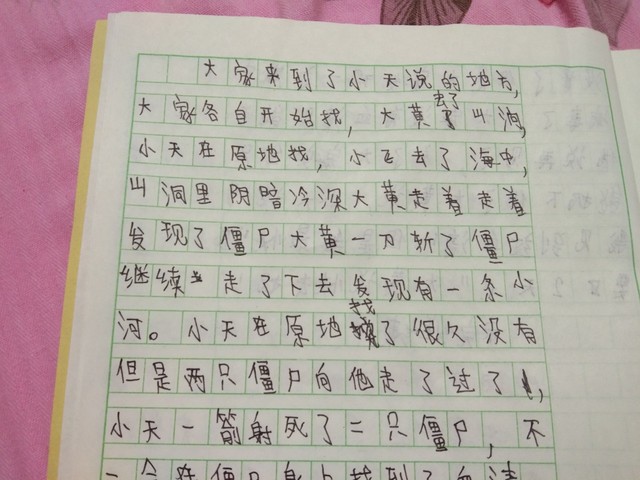 大家来到了小天说的地方,
大家各自开始找,大黄去了山洞,
小天在原地找,小飞去了海中,
山洞里阴暗冷深大黄走着走着
发现了僵尸大黄一刀斩了僵尸
继续走了下去发现有一条小
河。小天在原地找了很久没有
但是两只僵尸向他走了过了,
小天一箭射死了二只僵尸,不
一会在僵尸身上找到了